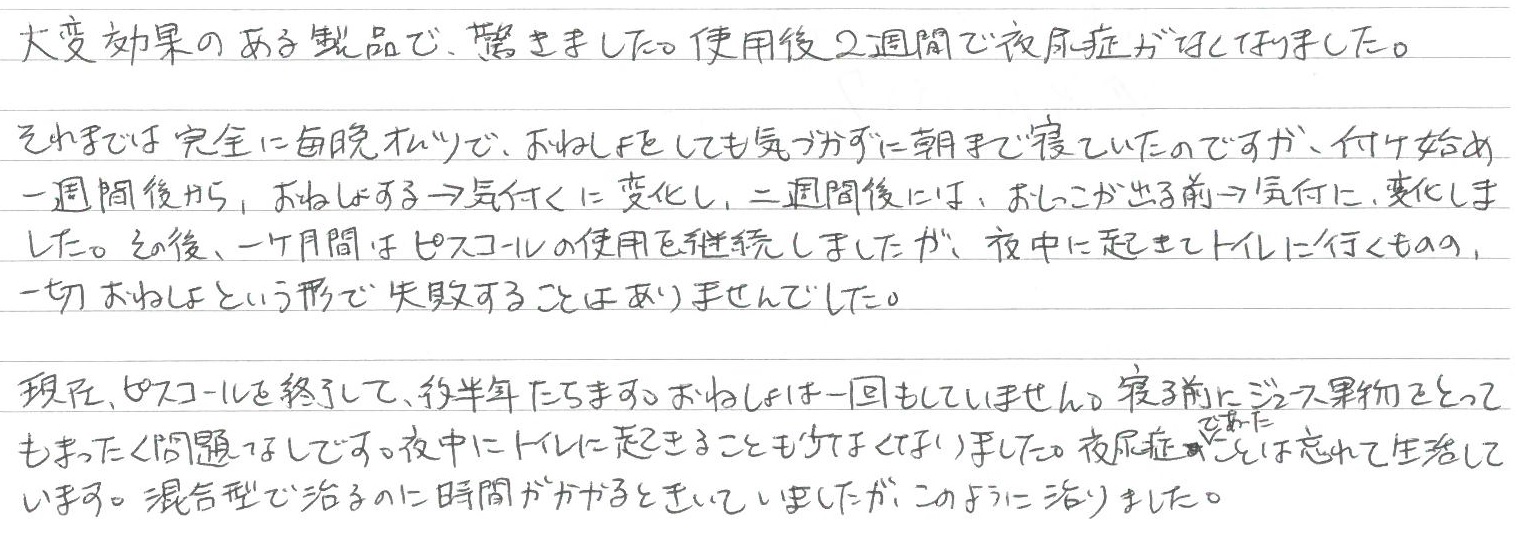 大変効果のある製品で、驚きました。使用後2週間で夜尿症がなくなりました。
それまでは完全に毎晩オムツで、おねしょをしても気づかずに朝まで寝ていたのですが、付け始め
一週間後から、おねしょする→気付くに変化し、二週間後には、おしっこが出る前→気付に、変化しま
した。その後、一ヶ月間はピスコールの使用を継続しましたが、夜中に起きてトイレに行くものの、
一切おねしょという形で失敗することはありませんでした。
現在、ピスコールを終了して、約半年たちます。おねしょは一回もしていません。寝る前にジュース果物をとって
もまったく問題なしです。夜中にトイレに起きることも少なくなりました。夜尿症であったことは忘れて生活して
います。混合型で治るのに時間がかかるときいていましたが、このように治りました。